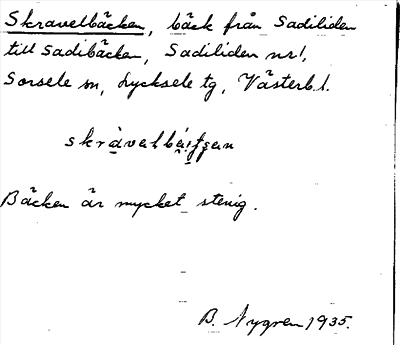 Skravelbäcken, bäck från Sadiliden
till Sadibäcken, Sadiliden nr 1,
Sorsele sn, Lycksele tg, Västerb.l.
Bäcken är mycket stenig.
B. Nygren 1935.